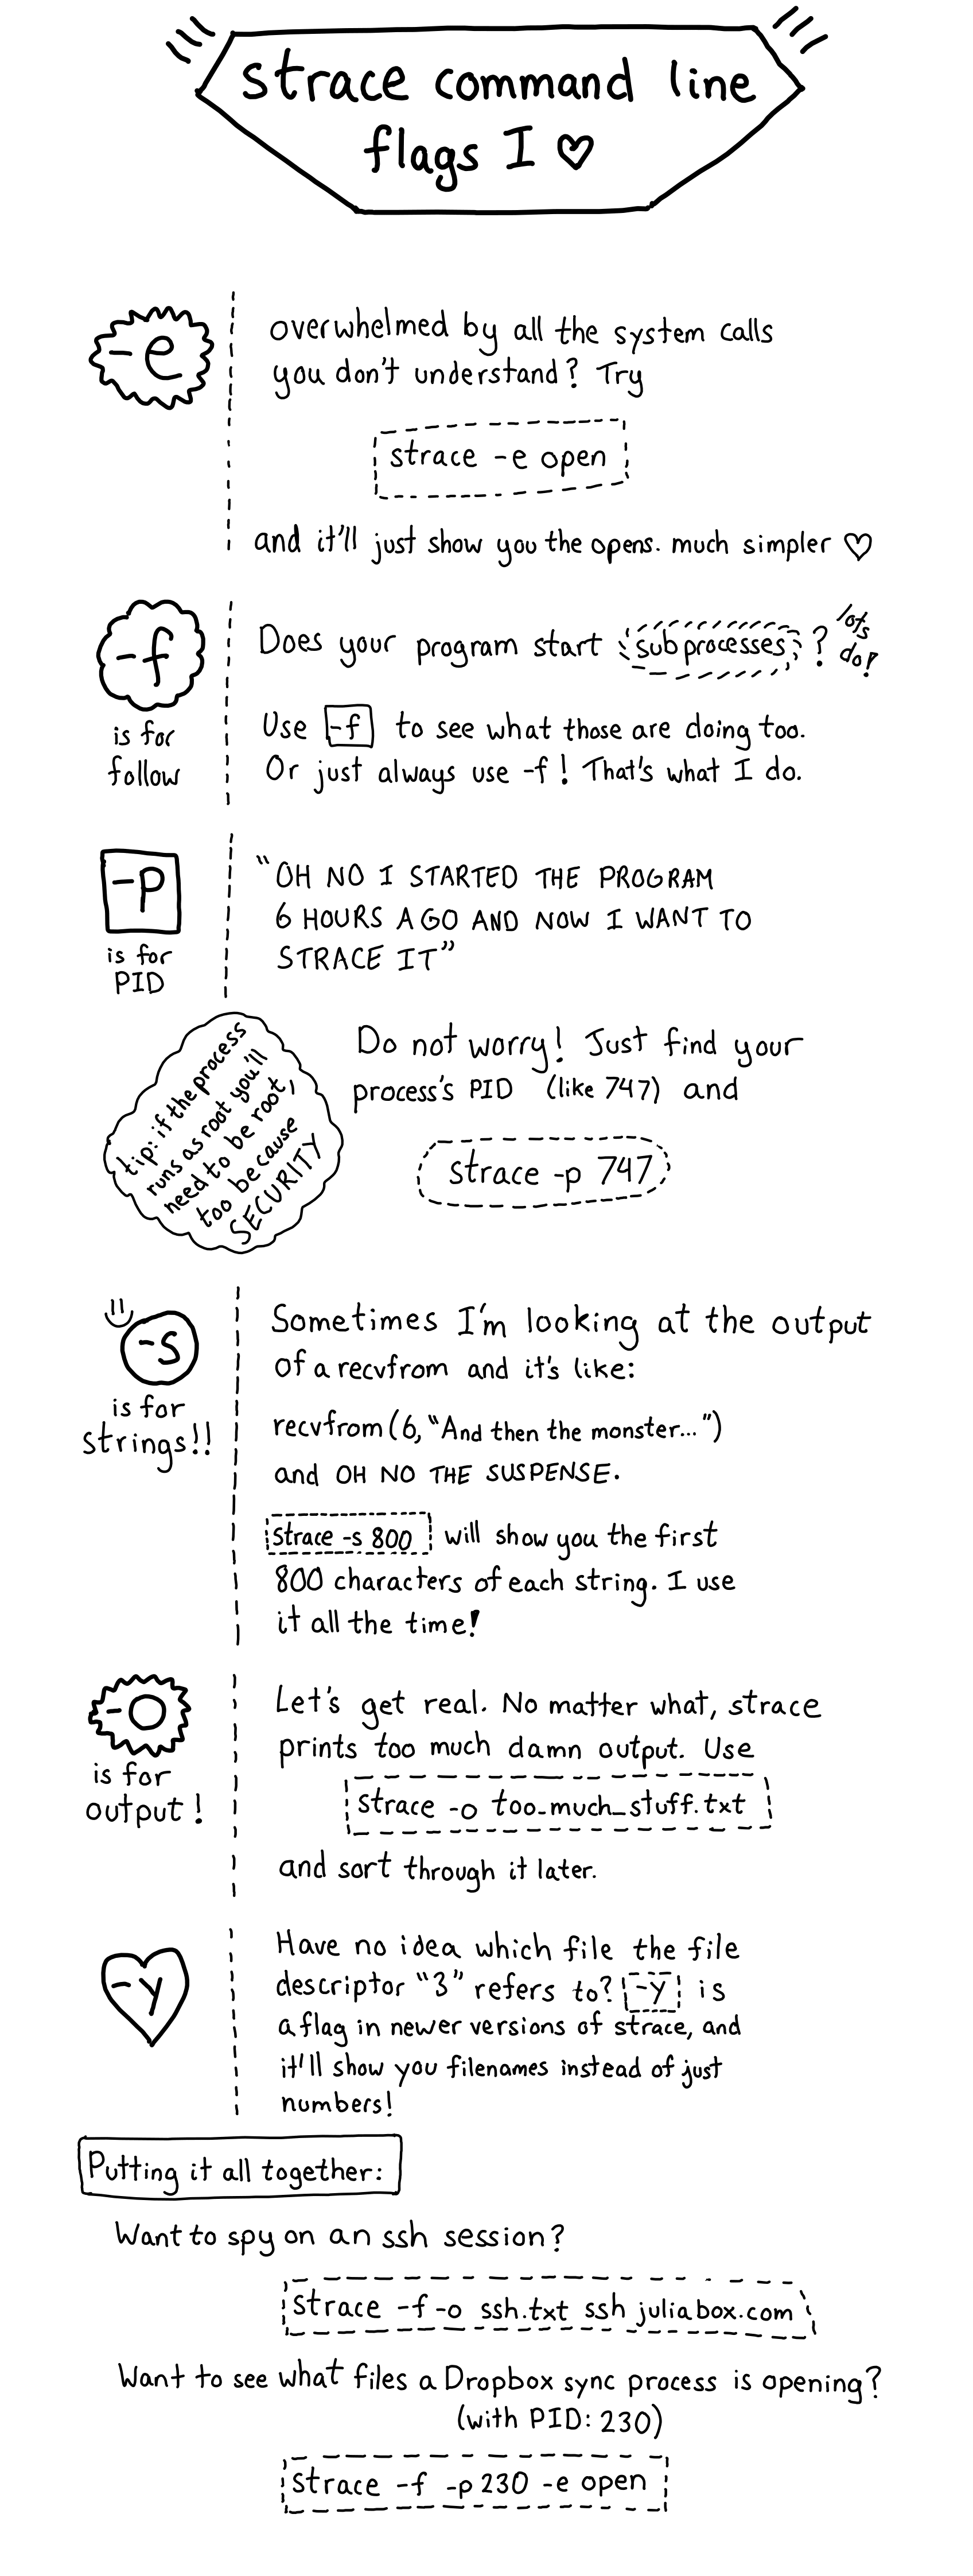 strace command line
flags I ♡
-e
overwhelmed by all the system calls
you don't understand? Try
strace -e open
and it'll just show you the opens. much simpler ♡
-f
is for
follow
Does your program start subprocesses?
lots
do!
Use -f to see what those are doing too.
Or just always use -f! That's what I do.
-P
is for
PID
"OH NO I STARTED THE PROGRAM
6 HOURS AGO AND NOW I WANT TO
STRACE IT"
tip: if the process
runs as root you'll
need to be root,
too because
SECURITY
Do not worry! Just find your
process's PID (like 747) and
strace -p 747
-s
is for
strings!!
Sometimes I'm looking at the output
of a recvfrom and it's like:
recvfrom(6, "And then the monster...")
and OH NO THE SUSPENSE.
strace -s 800 will show you the first
800 characters of each string. I use
it all the time!
-o
is for
output!
Let's get real. No matter what, strace
prints too much damn output. Use
strace -o too_much_stuff.txt
and sort through it later.
-y
Have no idea which file the file
descriptor "3" refers to? -y is
a flag in newer versions of strace, and
it'll show you filenames instead of just
numbers!
Putting it all together:
Want to spy on an ssh session?
strace -f -o ssh.txt ssh juliabox.com
Want to see what files a Dropbox sync process is opening?
(with PID: 230)
strace -f -p 230 -e open